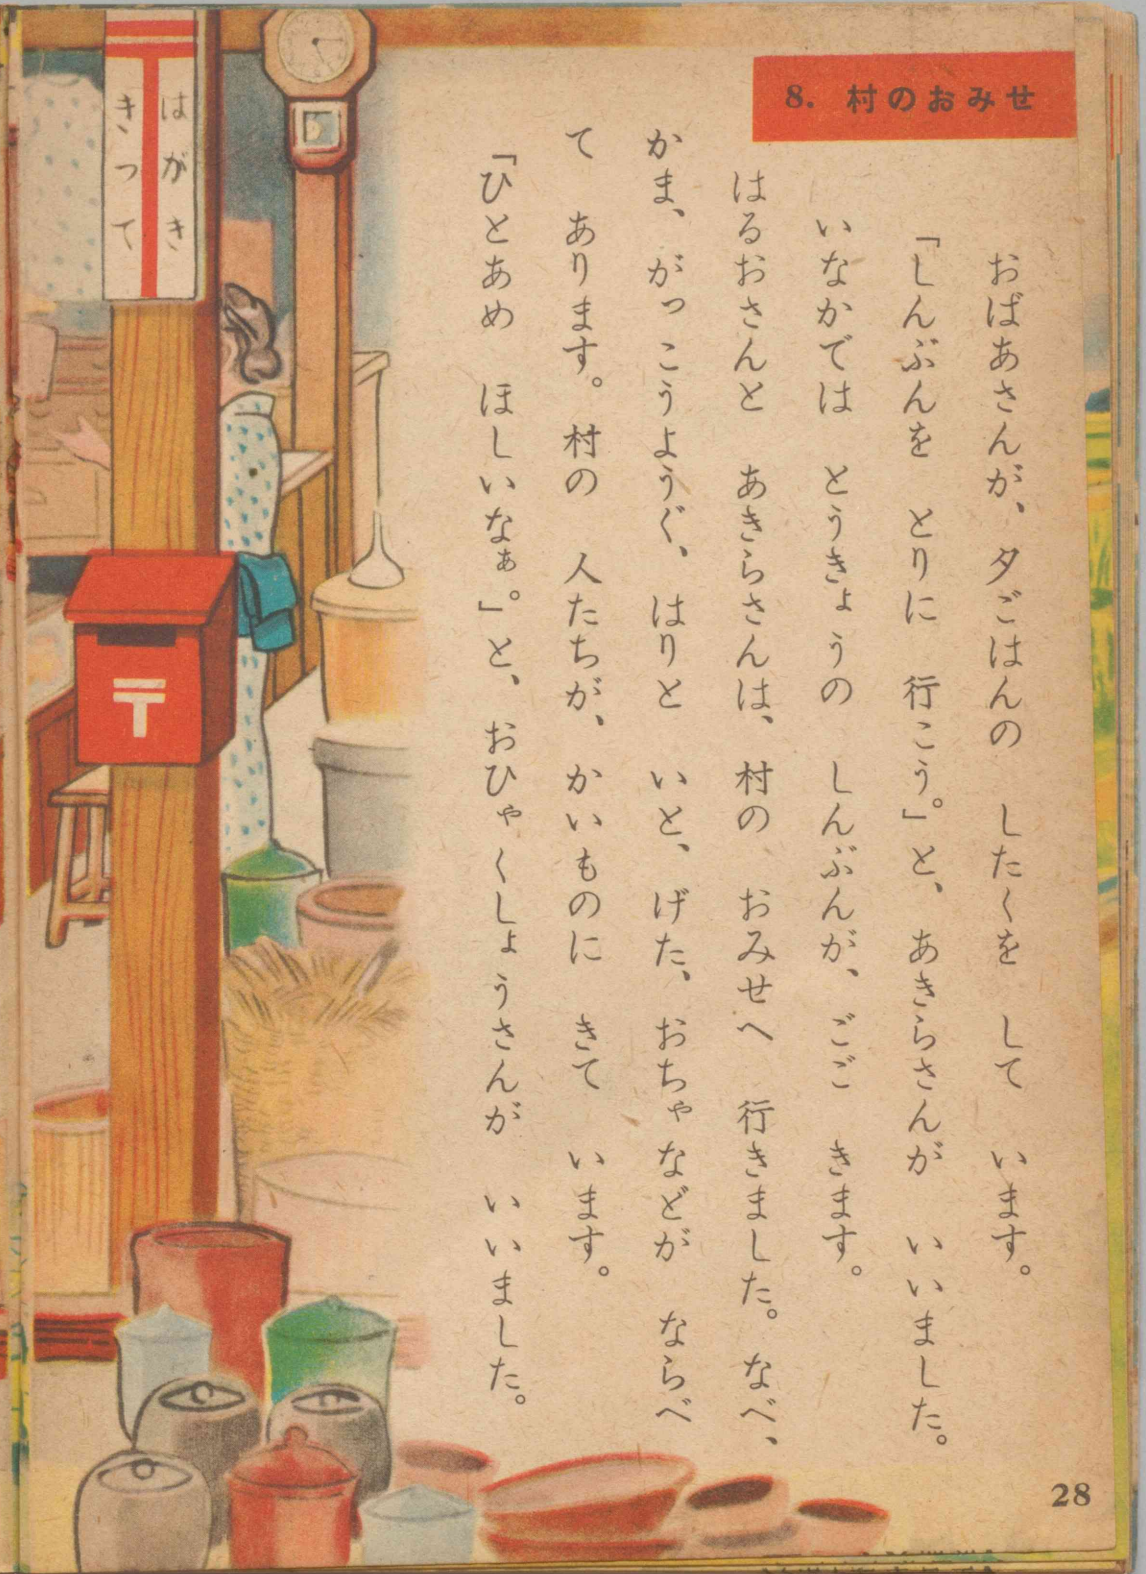 8. 村のおみせ
おばあさんが、夕ごはんの したくを して います。
「しんぶんを とりに 行こう。」と、あきらさんが いいました。
いなかでは とうきょうの しんぶんが、ごご きます。
はるおさんと あきらさんは、村の おみせへ 行きました。なべ、
かま、がっこうようぐ、はりと いと、げた、おちゃなどが ならべ
て あります。村の 人たちが、かいものに きて います。
「ひとあめ ほしいなぁ。」と、おひゃくしょうさんが いいました。
はがき
きって
28